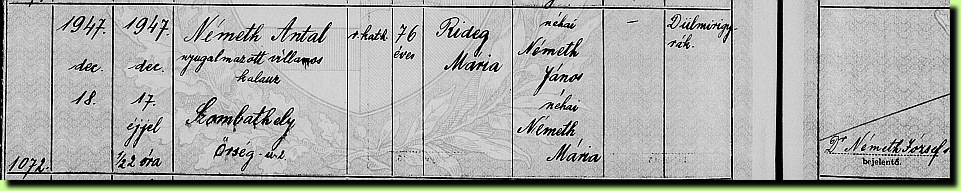 1072.
1947.
dec.
18.
1947.
dec.
17.
éjjel
1/22 óra
Németh Antal
nyugalmazott villamos
kalauz
Szombathely
Őrség-u. 2
r. kath.
76
éves
Rideg
Mária
néhai
Németh
János
néhai
Németh
Mária
—
Dülmirigy-
rák.
Dr Németh József s.
bejelentő.